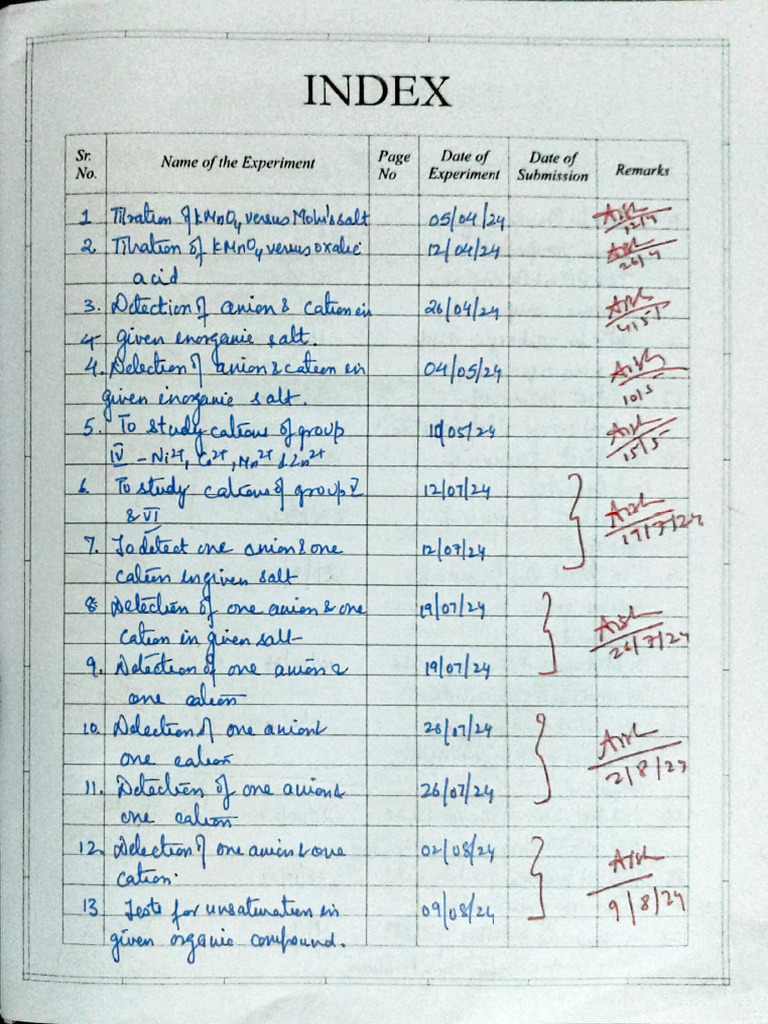 INDEX
Sr. No. Name of the Experiment Page No Date of Experiment Date of Submission Remarks
1 Titration of KMnO4 versus Mohr's salt 05/04/24 12/4
2 Titration of KMnO4 versus oxalic 12/04/24 26/4
acid
3. Detection of anion & cation in 26/04/24 4/5/
given inorganic salt.
4. Detection of anion & cation in 04/05/24 10/5
given inorganic salt.
5. To study cations of group 10/05/24 15/5
IV - Ni2+, Co2+, Mn2+ & Zn2+
6. To study cations of group V 12/07/24
& VI 19/7/24
7. To detect one anion & one 12/07/24
cation in given salt
8. Detection of one anion & one 19/07/24
cation in given salt 26/7/24
9. Detection of one anion & 19/07/24
one cation
10. Detection of one anion & 26/07/24
one cation 2/8/23
11. Detection of one anion & 26/07/24
one cation
12. Detection of one anion & one 02/08/24
cation.
13 Tests for unsaturation in 09/08/24 9/8/24
given organic compound.